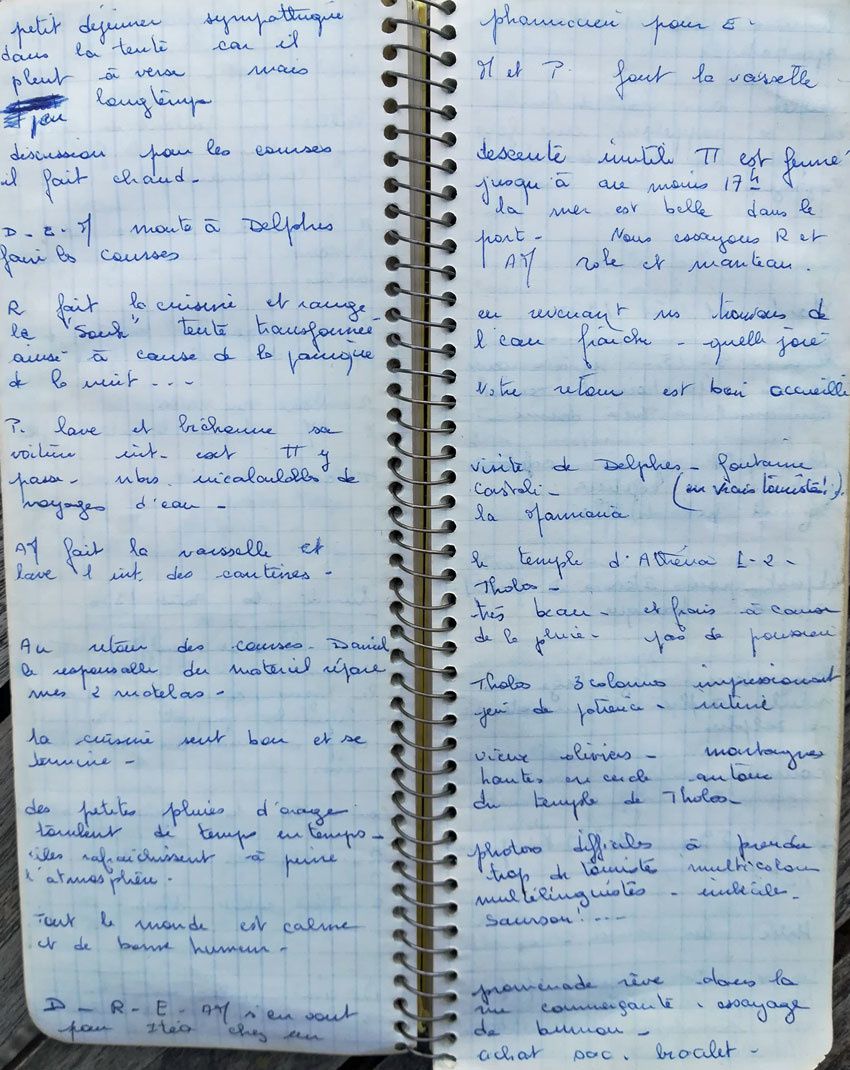 petit déjeuner sympathique
dans la tente car il
pleut à verse mais
peu longtemps
discussion pour les courses
il fait chaud -
D - E - M monte à Delphes
faire les courses
R fait la cuisine et range
le "Souk" tente transformée
ainsi à cause de la panique
de la nuit ---
P. lave et bichonne sa
voiture int. ext tt y
passe - nbrs. incalculables de
voyages d'eau -
AM fait la vaisselle et
lave l'int. des cantines -
Au retour des courses - Daniel
le responsable du matériel répare
mes 2 matelas -
la cuisine sent bon et se
termine -
des petites pluies d'orage
tombent de temps en temps -
elles rafraîchissent à peine
l'atmosphère.
Tout le monde est calme
et de bonne humeur -
D - R - E - AM s'en vont
pour Itéa chez un
pharmacien pour E.
M et P. font la vaisselle
descente inutile TT est fermé
jusqu'à au moins 17h
la mer est belle dans le
port - Nous essayons R et
AM robe et manteau.
en revenant ns trouvons de
l'eau fraîche - quelle joie
Notre retour est bien accueilli
visite de Delphes - fontaine
Castali - (en vrais touristes!).
la Marmaria
le temple d'Athéna 1-2 -
Tholos -
très beau - et frais à cause
de la pluie - pas de poussière
Tholos 3 colonnes impressionnant
jeu de patience -
vieux oliviers - montagnes
hautes en cercle autour
du temple de Tholos -
photos difficiles à prendre
trop de touristes multicolores
multilinguistes - imbéciles -
Samson! ----
promenade rêve dans la
rue commerçante. essayage
de
achat sac. bracelet -